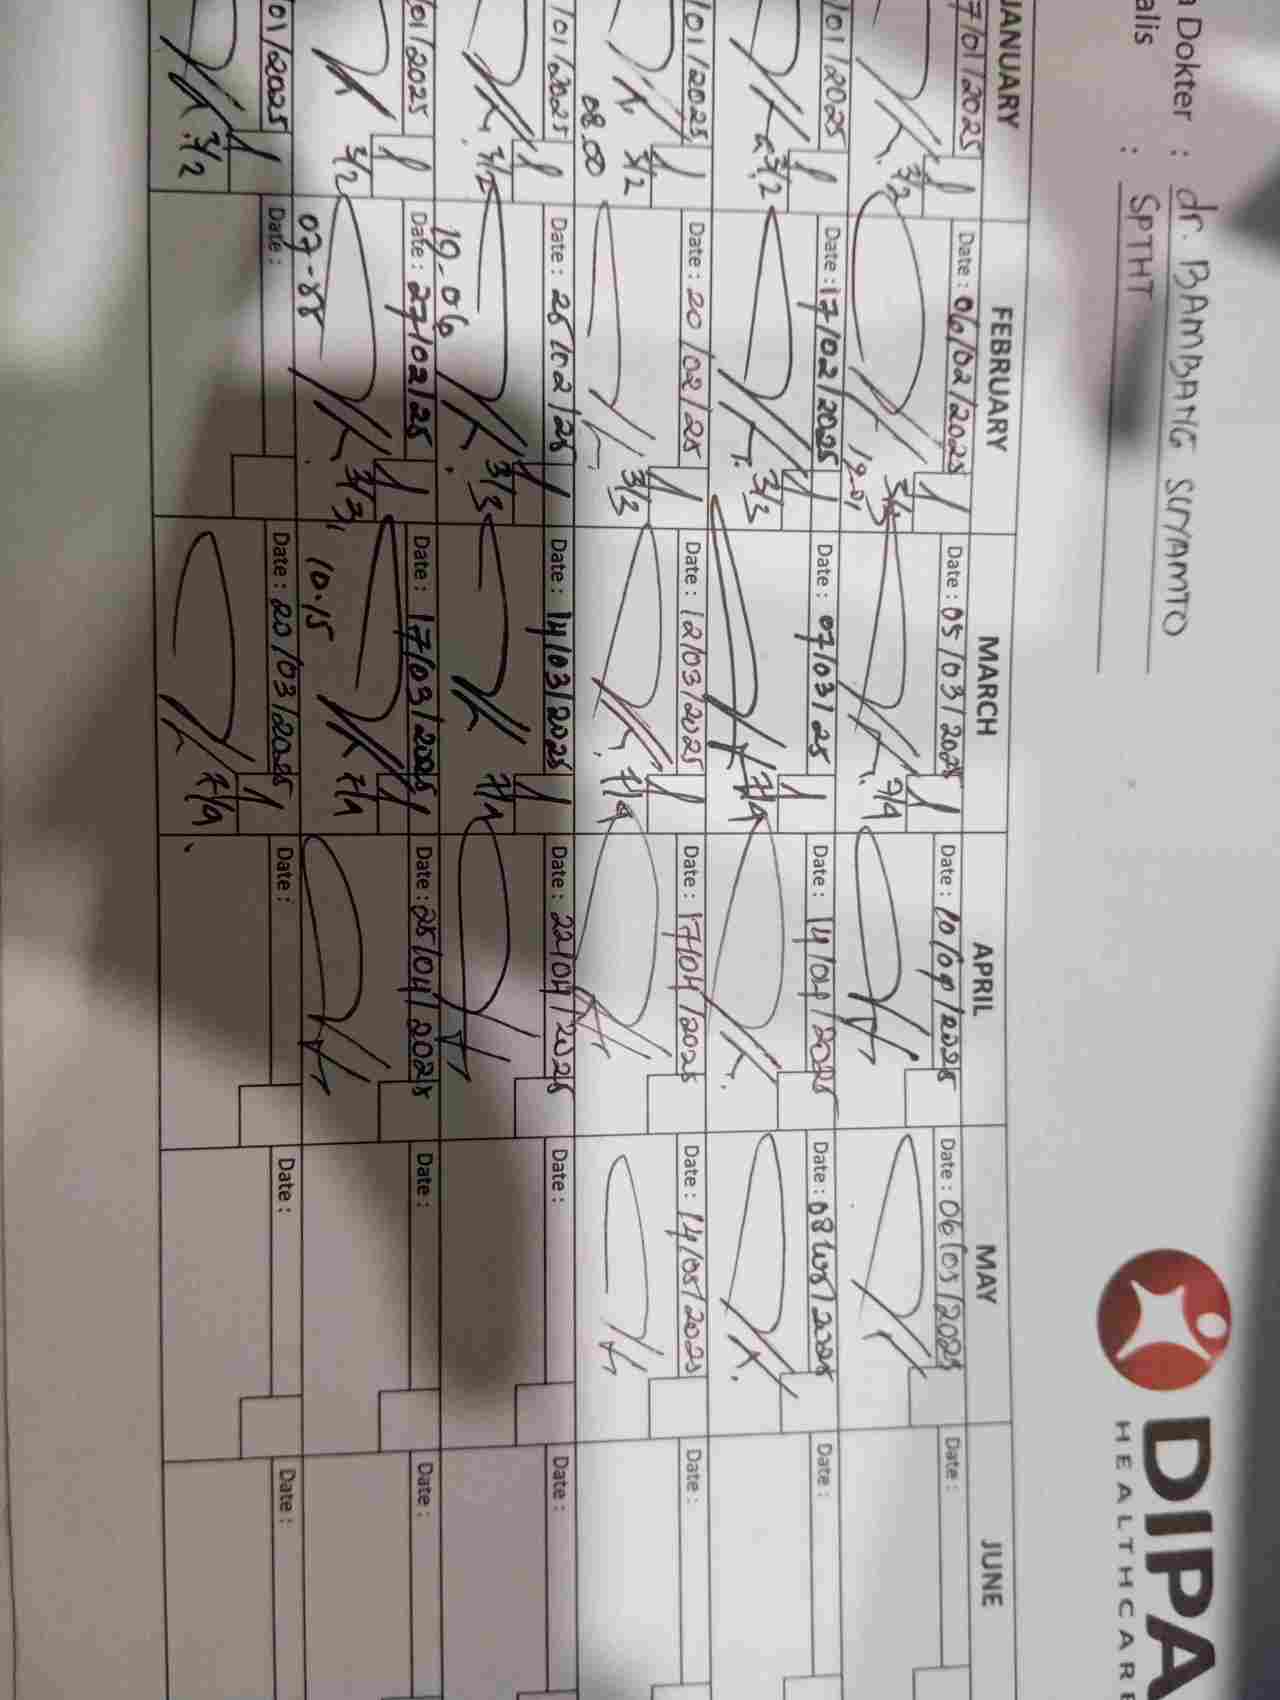 Dokter : dr. BAMBANG SUYAMTO
alis : SPTHT
DIPA
HEALTHCARE
JANUARY FEBRUARY MARCH APRIL MAY JUNE
7/01/2025 Date : 06/02/2025 Date : 05/03/2025 Date : 10/04/2025 Date : 06/05/2025 Date :
3/2 19.01 3/3 7/4
/01/2025 Date : 17/02/2025 Date : 07/03/25 Date : 14/04/2025 Date : 08/05/2025 Date :
3/2 3/3 7/4
/01/2025 Date : 20/02/25 Date : 12/03/2025 Date : 17/04/2025 Date : 14/05/2025 Date :
08.00 3/2 3/3 7/4
/01/2025 Date : 25/02/25 Date : 14/03/2025 Date : 22/04/2025 Date : Date :
3/2 3/3 7/4
19.06
/01/2025 Date : 27/02/25 Date : 17/03/2025 Date : 25/04/2025 Date : Date :
3/2 3/3 7/4
10.15
/01/2025 Date : Date : 20/03/2025 Date : Date : Date :
3/2 7/4